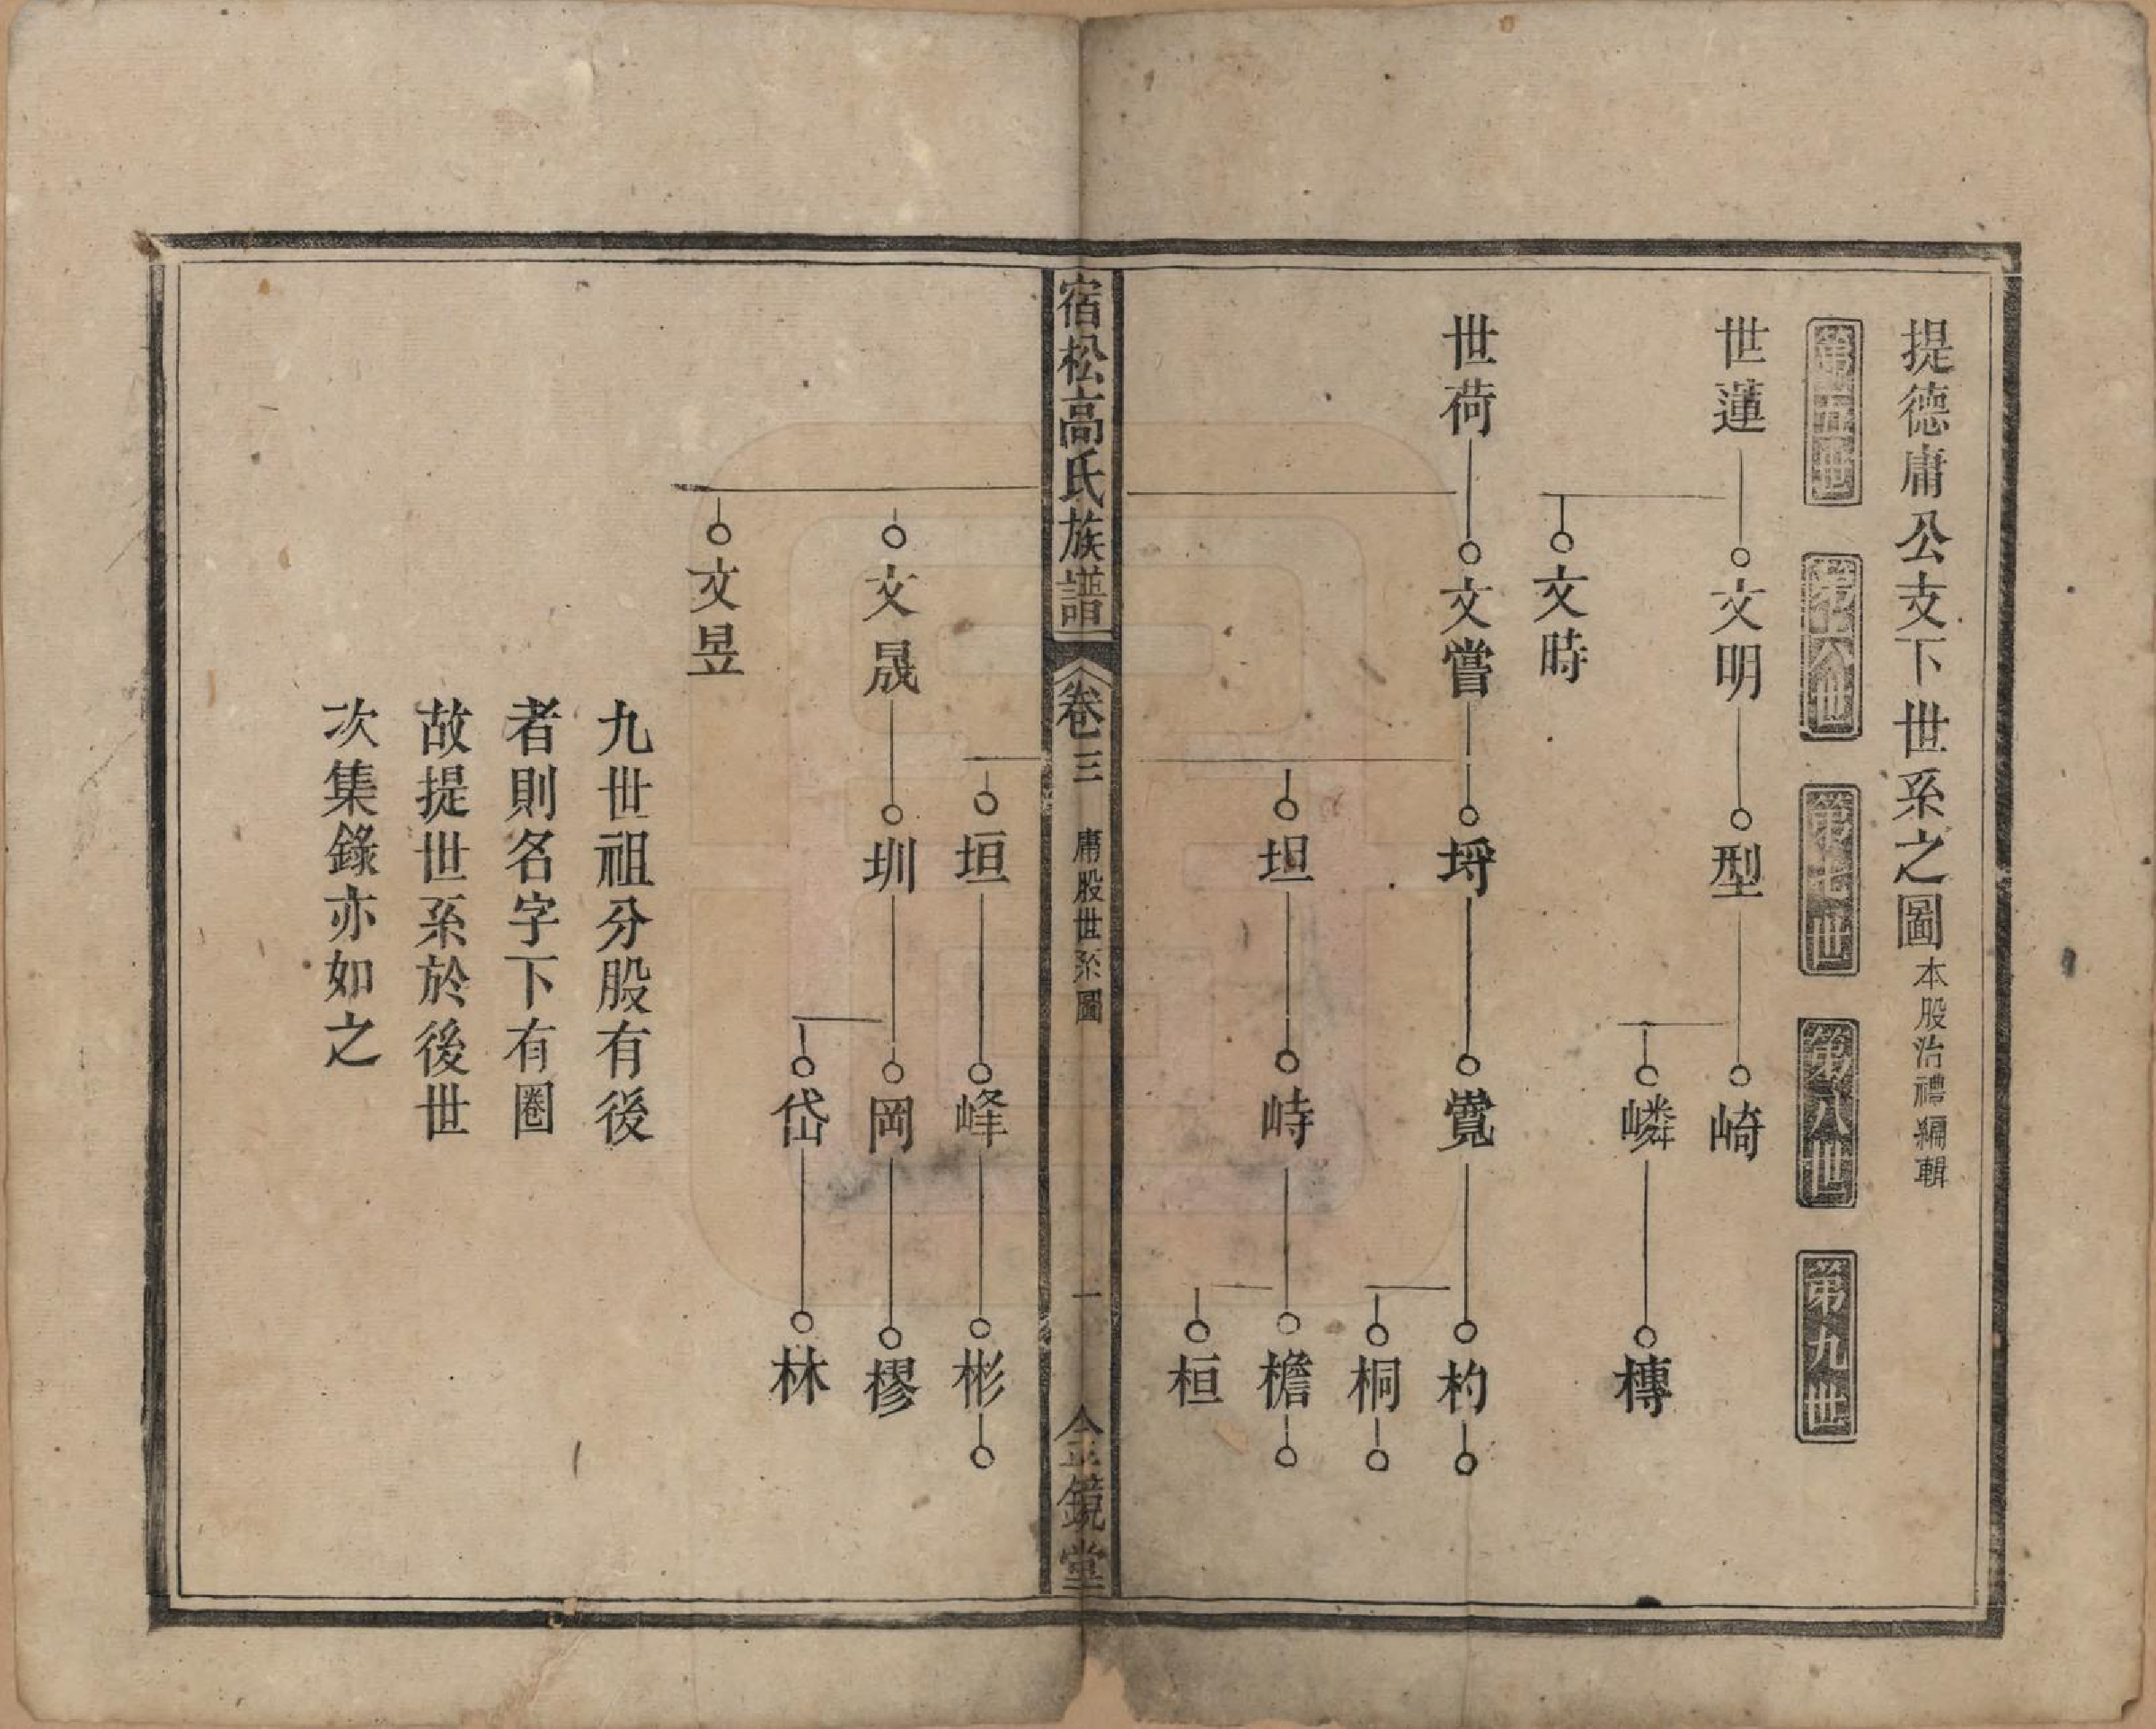 提德庸公支下世系之圖 本股治禮編輯
第五世 第六世 第七世 第八世 第九世
世蓮 文明 型 崎
嶙 榑
文時
世荷 文嘗 埓 覺 杓
桐
坦 峙 檐
桓
宿松高氏族譜 卷三 庸股世系圖 一 金鏡堂
垣 峰 彬
文晟 圳 岡 樛
岱 林
文昱
九世祖分股有後
者則名字下有圈
故提世系於後世
次集錄亦如之